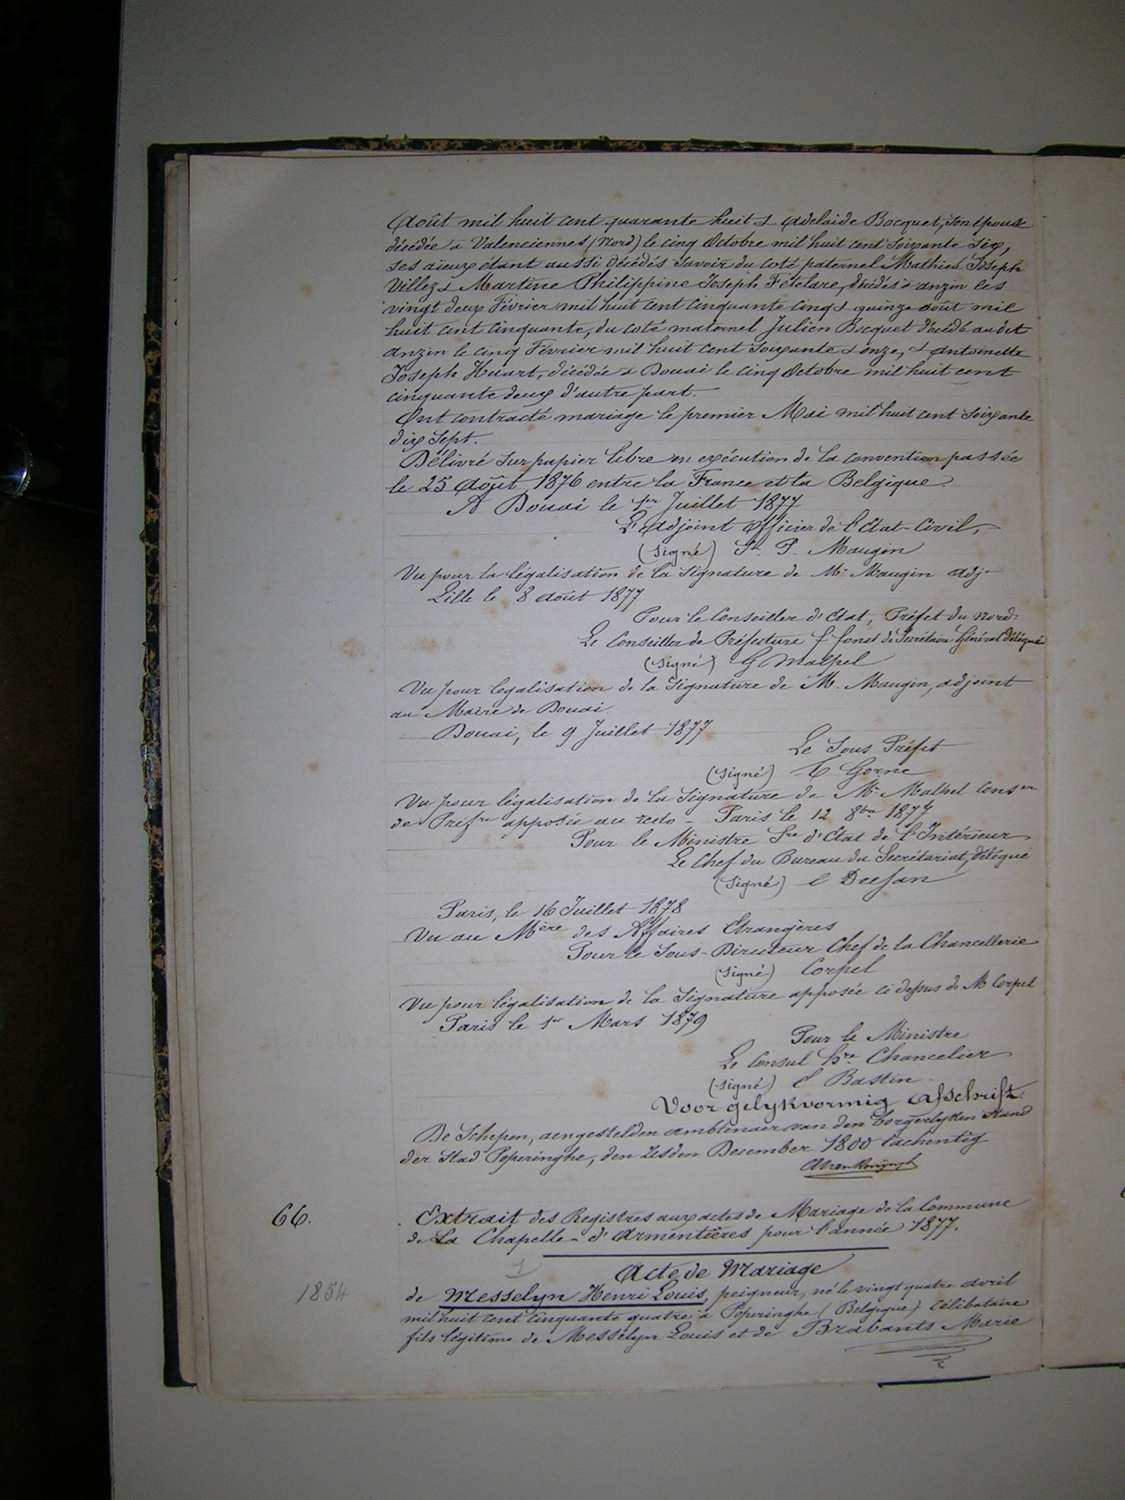 Août mil huit cent quarante huit & Adelaide Bocquet, son épouse
décédée à Valenciennes (Nord) le cinq Octobre mil huit cent soixante six,
ses aïeux étant aussi décédés savoir du coté paternel Mathieu Joseph
Villez & Martine Philippine Joseph Fételare, décédés à anzin les
vingt deux Février mil huit cent cinquante cinq & quinze août mil
huit cent cinquante, du coté maternel Julien Bocquet décédé audit
anzin le cinq Février mil huit cent soixante & onze, & antoinette
Joseph Huart, décédée à Douai le cinq Octobre mil huit cent
cinquante deux d'autre part.
Ont contracté mariage le premier Mai mil huit cent soixante
dix sept.
Délivré sur papier libre en exécution de la convention passée
le 25 Août 1876 entre la France et la Belgique.
A Douai le 1er Juillet 1877
L'adjoint officier de l'Etat-Civil,
(signé) P. Maugin
Vu pour la légalisation de la signature de Mr Maugin adjt
Lille le 8 août 1877
Pour le Conseiller d'Etat, Préfet du Nord:
Le Conseiller de Préfecture f. fonct de Secrétaire Général délégué
(signé) G Malpel
Vu pour légalisation de la signature de M. Maugin, adjoint
au Maire de Douai
Douai, le 9 Juillet 1877
Le Sous Préfet
(signé) Gorne
Vu pour légalisation de la signature de Mr Malpel Conser
de Préfre apposée au recto - Paris le 12 8bre 1877
Pour le Ministre Sre d'Etat de l'Intérieur
Le Chef du Bureau du Secrétariat, délégué
(signé)
Paris, le 16 Juillet 1878
Vu au Mère des Affaires Etrangères
Pour le Sous-Directeur Chef de la Chancellerie
(signé) Corpel
Vu pour légalisation de la signature apposée ci dessus de M Corpel
Paris le 1er Mars 1879
Pour le Ministre
Le Consul hre Chancelier
(signé) E Bastin
Voor gelykvormig afschrift
De Schepen, aengestelden ambtenaer van den Borgerlyken Stand
der Stad Poperinghe, den zesden December 1800 tachentig
66. Extrait des Registres aux actes de Mariage de la Commune
de La Chapelle-d'Armentières pour l'année 1877.
Acte de Mariage
1854 de Messelyn Henri Louis, peigneur, né le vingt quatre avril
mil huit cent cinquante quatre à Poperinghe (Belgique) célibataire
fils légitime de Messelyn Louis et de Brabants Marie